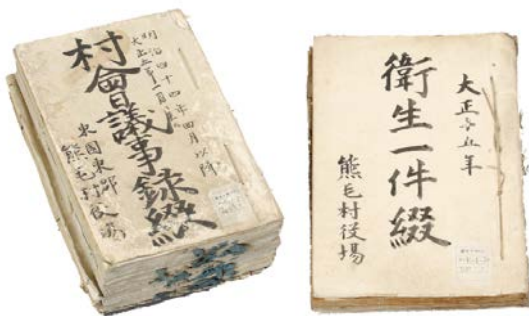 明治四十四年四月以降
村會議事録綴
東国東郡
熊毛村役場
大正十五年
衛生一件綴
熊毛村役場